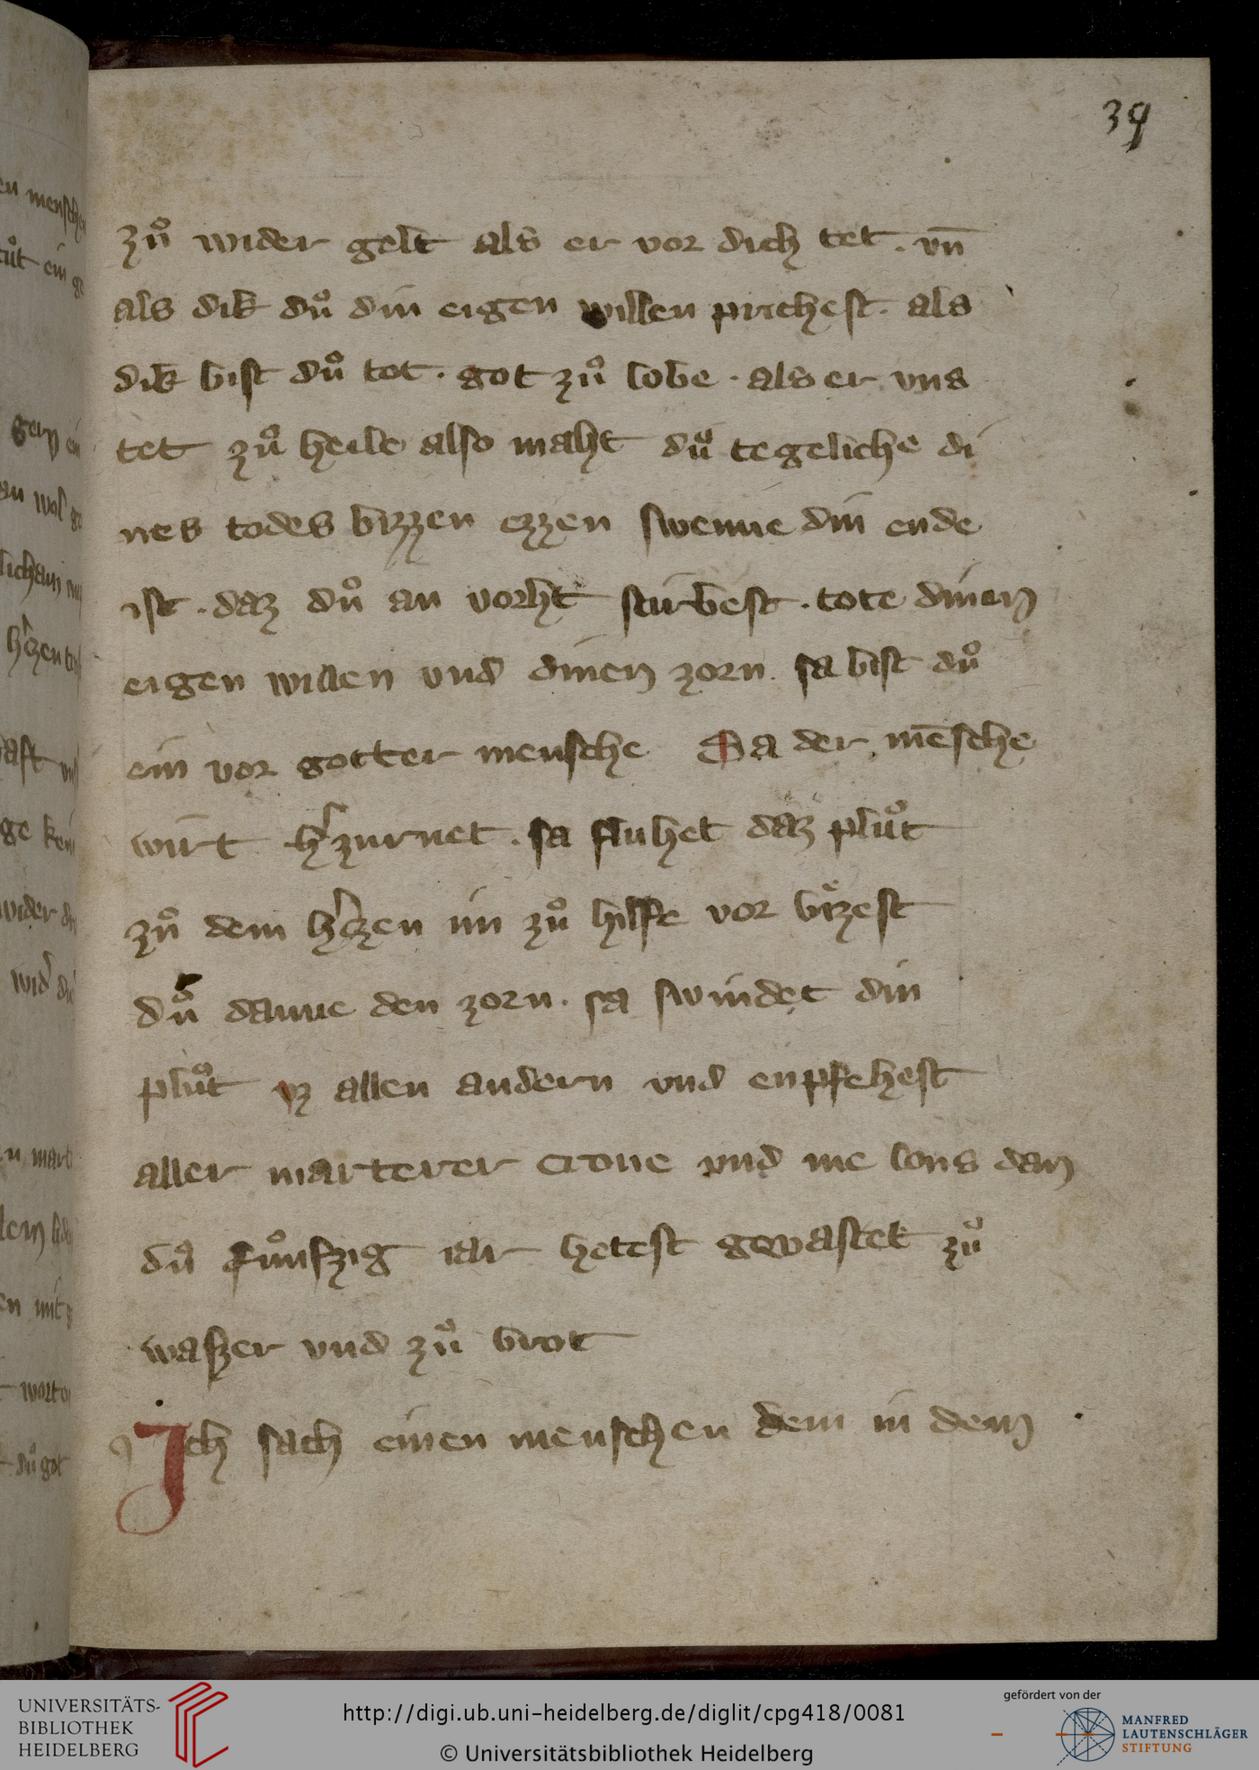 39
zuͦ wider gelt als er vor dich tet . vn̄
als dik duͦ din eigen willen prichest . als
dik bist duͦ tot . got zuͦ lobe . als er vns
tet zuͦ heile also maht duͦ tegeliche di
nes todes bizzen ezzen swenne din ende
ist . daz duͦ an vorht stirbest . tote dinen
eigen willen vnd dinen zorn . sa bist duͦ
ein vor gotter mensche Sa der mēsche
wirt h͛zurnet . sa fluhet daz pluͦt
zuͦ dem h͛zen im zuͦ hilfe vor
duͦ danne den zorn . sa swindet din
pluͦt vz allen andern vnd enpfehest
aller marterer crone vnd me lons dan
duͦ fuͦnfzig iar hetest gevastet zuͦ
waszer vnd zuͦ brot
Ich sach einen menschen dem in dem
UNIVERSITÄTS-
BIBLIOTHEK
HEIDELBERG
http://digi.ub.uni-heidelberg.de/diglit/cpg418/0081
© Universitätsbibliothek Heidelberg
gefördert von der
MANFRED
LAUTENSCHLÄGER
STIFTUNG